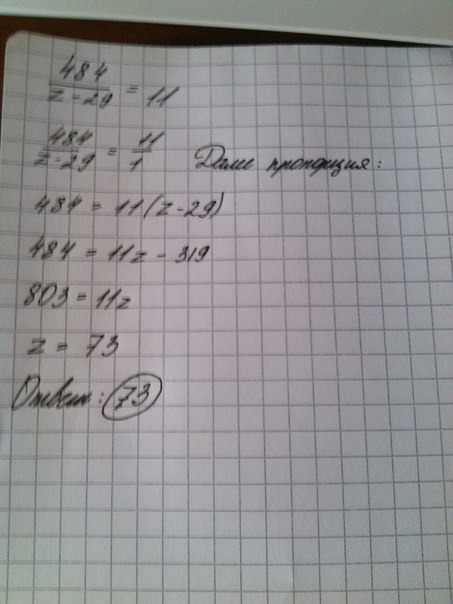 484/(z-29) = 11
484/(z-29) = 11/1 Далее пропорция:
484 = 11(z-29)
484 = 11z - 319
803 = 11z
z = 73
Ответ: 73